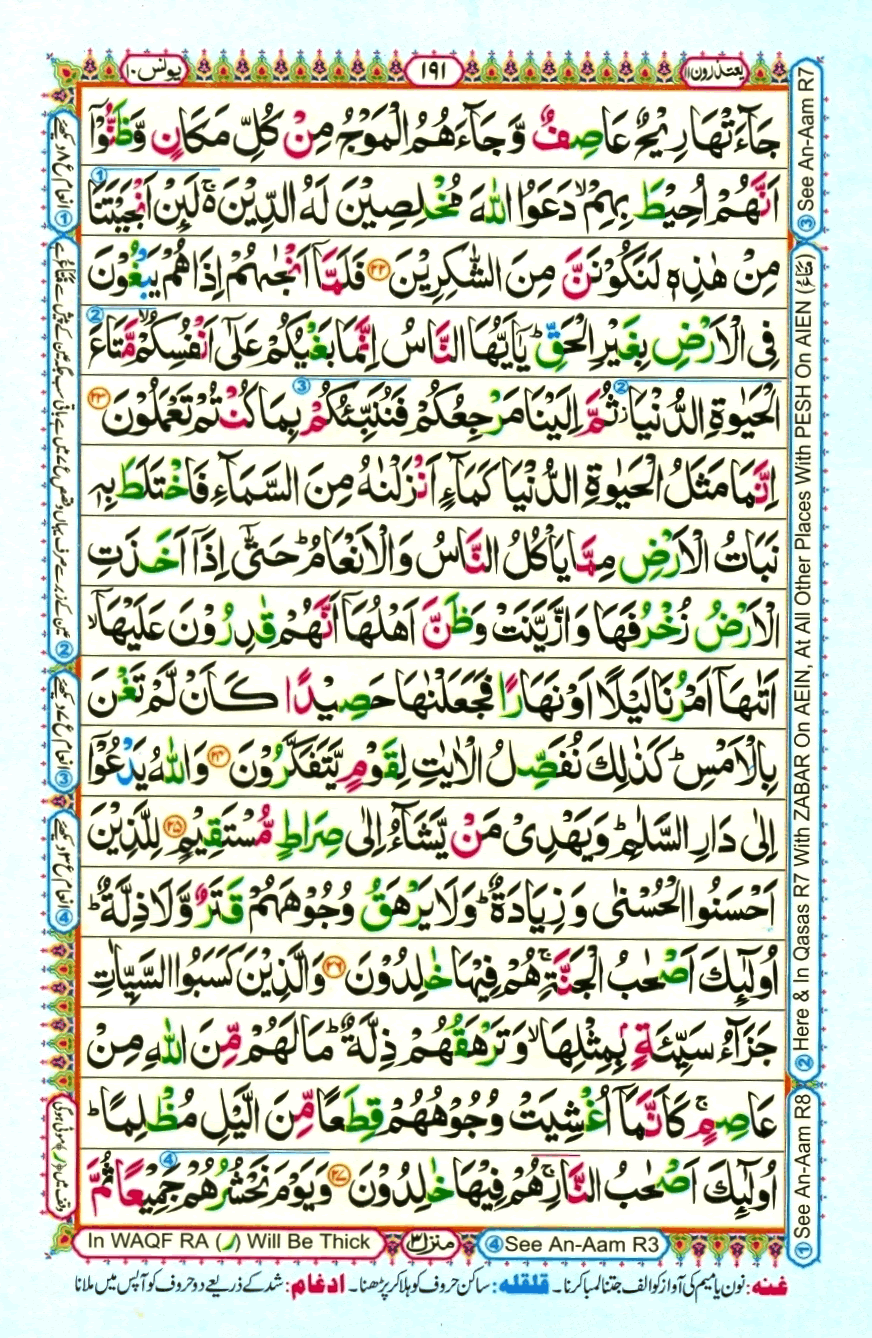 یعتذرون ۱۱
۱۹۱
یونس ۱۰
جَآءَتْهَا رِیْحٌ عَاصِفٌ وَّ جَآءَهُمُ الْمَوْجُ مِنْ كُلِّ مَكَانٍ وَّ ظَنُّوْۤا
اَنَّهُمْ اُحِیْطَ بِهِمْ ۙ دَعَوُا اللّٰهَ مُخْلِصِیْنَ لَهُ الدِّیْنَ ۚ۬ لَىِٕنْ اَنْجَیْتَنَا
مِنْ هٰذِهٖ لَنَكُوْنَنَّ مِنَ الشّٰكِرِیْنَ ۝۲۲ فَلَمَّاۤ اَنْجٰىهُمْ اِذَا هُمْ یَبْغُوْنَ
فِی الْاَرْضِ بِغَیْرِ الْحَقِّ ؕ یٰۤاَیُّهَا النَّاسُ اِنَّمَا بَغْیُكُمْ عَلٰۤی اَنْفُسِكُمْ ۙ مَّتَاعَ
الْحَیٰوةِ الدُّنْیَا ؗ ثُمَّ اِلَیْنَا مَرْجِعُكُمْ فَنُنَبِّئُكُمْ بِمَا كُنْتُمْ تَعْمَلُوْنَ ۝۲۳
اِنَّمَا مَثَلُ الْحَیٰوةِ الدُّنْیَا كَمَآءٍ اَنْزَلْنٰهُ مِنَ السَّمَآءِ فَاخْتَلَطَ بِهٖ
نَبَاتُ الْاَرْضِ مِمَّا یَاْكُلُ النَّاسُ وَ الْاَنْعَامُ ؕ حَتّٰۤی اِذَاۤ اَخَذَتِ
الْاَرْضُ زُخْرُفَهَا وَ ازَّیَّنَتْ وَ ظَنَّ اَهْلُهَاۤ اَنَّهُمْ قٰدِرُوْنَ عَلَیْهَاۤ ۙ
اَتٰىهَاۤ اَمْرُنَا لَیْلًا اَوْ نَهَارًا فَجَعَلْنٰهَا حَصِیْدًا كَاَنْ لَّمْ تَغْنَ
بِالْاَمْسِ ؕ كَذٰلِكَ نُفَصِّلُ الْاٰیٰتِ لِقَوْمٍ یَّتَفَكَّرُوْنَ ۝۲۴ وَ اللّٰهُ یَدْعُوْۤا
اِلٰی دَارِ السَّلٰمِ ؕ وَ یَهْدِیْ مَنْ یَّشَآءُ اِلٰی صِرَاطٍ مُّسْتَقِیْمٍ ۝۲۵ لِلَّذِیْنَ
اَحْسَنُوا الْحُسْنٰی وَ زِیَادَةٌ ؕ وَ لَا یَرْهَقُ وُجُوْهَهُمْ قَتَرٌ وَّ لَا ذِلَّةٌ ؕ
اُولٰٓىِٕكَ اَصْحٰبُ الْجَنَّةِ ۚ هُمْ فِیْهَا خٰلِدُوْنَ ۝۲۶ وَ الَّذِیْنَ كَسَبُوا السَّیِّاٰتِ
جَزَآءُ سَیِّئَةٍۭ بِمِثْلِهَا ۙ وَ تَرْهَقُهُمْ ذِلَّةٌ ؕ مَا لَهُمْ مِّنَ اللّٰهِ مِنْ
عَاصِمٍ ۚ كَاَنَّمَاۤ اُغْشِیَتْ وُجُوْهُهُمْ قِطَعًا مِّنَ الَّیْلِ مُظْلِمًا ؕ
اُولٰٓىِٕكَ اَصْحٰبُ النَّارِ ۚ هُمْ فِیْهَا خٰلِدُوْنَ ۝۲۷ وَ یَوْمَ نَحْشُرُهُمْ جَمِیْعًا ثُمَّ
③ See An-Aam R7
② Here & In Qasas R7 With ZABAR On AEIN, At All Other Places With PESH On AIEN (مَتَاعُ)
① See An-Aam R8
① انعام ع ۸ دیکھئے
③ انعام ع ۷ دیکھئے
④ انعام ع ۳ دیکھئے
وقف میں (ر) موٹی ہوگی
In WAQF RA (ر) Will Be Thick
منزل ۳
④ See An-Aam R3
غنه: نون یا میم کی آواز کو الف جتنا لمبا کرنا۔ قلقله: ساکن حروف کو ہلا کر پڑھنا۔ ادغام: شد کے ذریعے دو حروف کو آپس میں ملانا